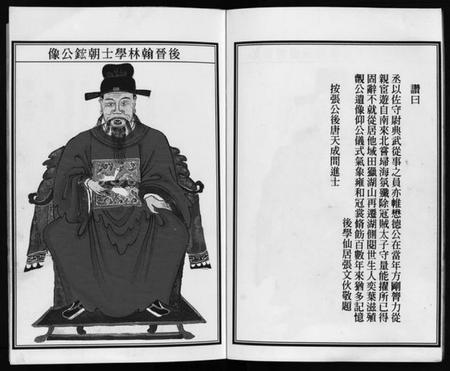 後晉翰林學士朝鋐公像
讚曰
丞以佐守尉典武從事之員亦帷懋德公在當年方剛膂力從
親宦遊自南來北嘗埽海氛殲除冠賊太子守量能擢所已得
固辭不就從居他域田獵湖山再遷湖側閱世生人奕葉滋殖
觀公遺像仰公儀式氣象雍和冠裳脩飭百數年來猶多記憶
後學仙居張文伙敬題
按張公後唐天成間進士